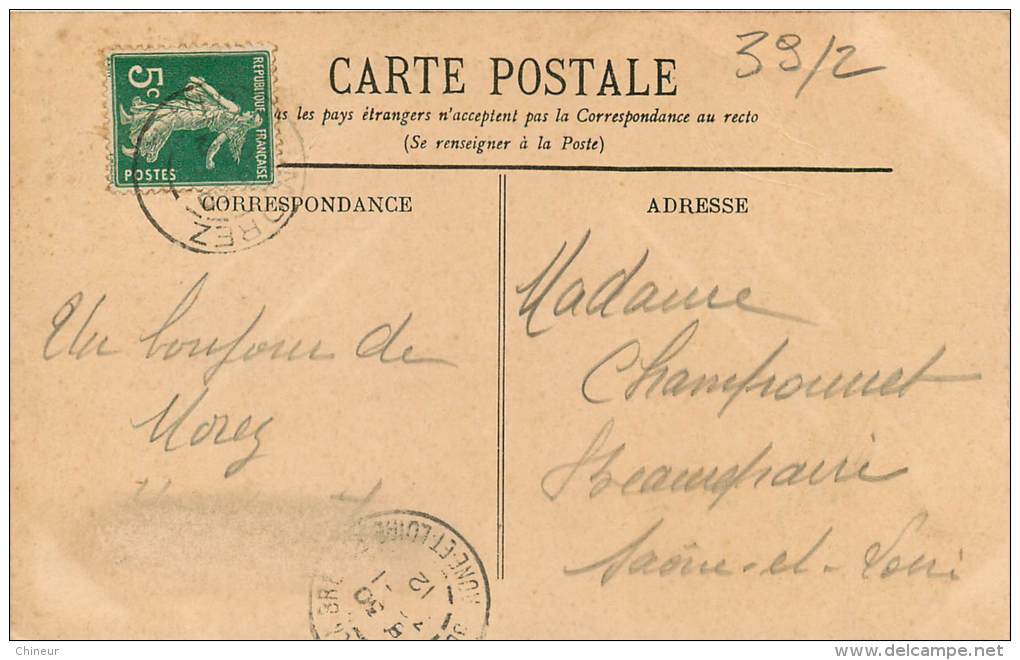 39/2
CARTE POSTALE
les pays étrangers n'acceptent pas la Correspondance au recto
(Se renseigner à la Poste)
5c
REPUBLIQUE FRANÇAISE
POSTES
MOREZ
CORRESPONDANCE
ADRESSE
Un bonjour de
Morez
Madame
Champonnet
Beaurepaire
Saône-et-Loire
ONE-ET-LOIRE
12
30
Chineur
www.delcampe.net